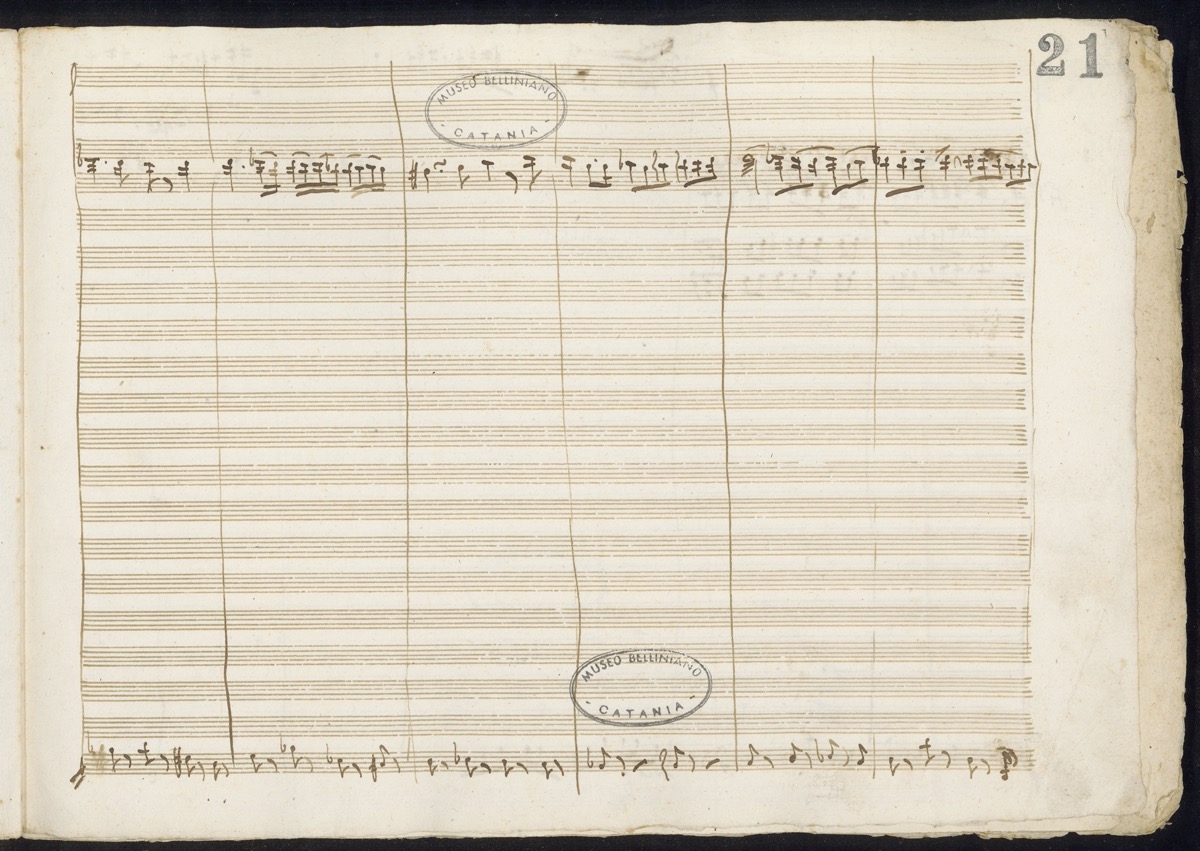 21
MUSEO BELLINIANO
- CATANIA -
MUSEO BELLINIANO
- CATANIA -